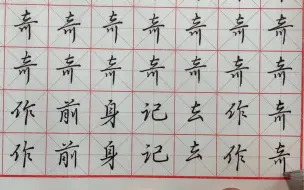 奇奇奇奇奇奇奇
奇奇奇奇奇奇奇
作前身记去作奇
作前身记去作奇